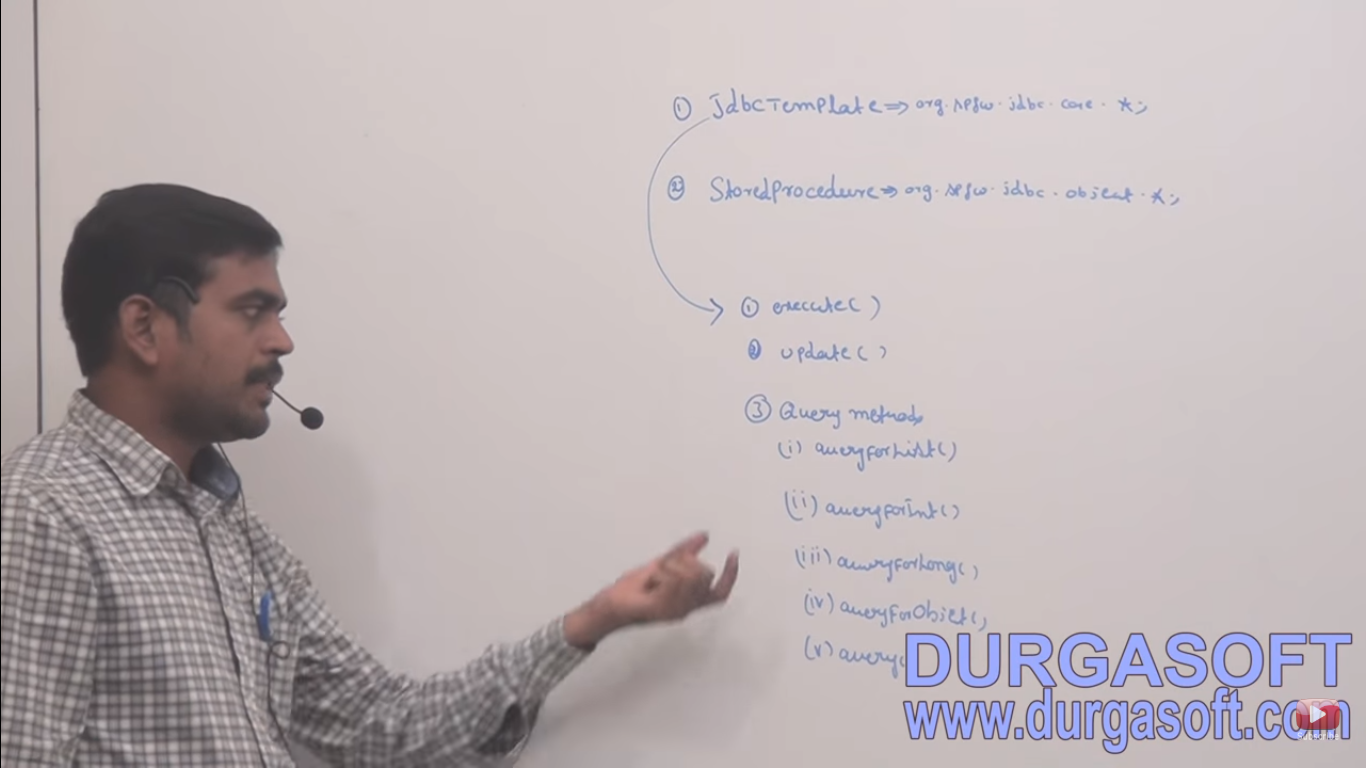 ① JdbcTemplate => org.spfw.jdbc.core.*;
② StoredProcedure => org.spfw.jdbc.object.*;
① execute()
② update()
③ Query methods
(i) queryForList()
(ii) queryForInt()
(iii) queryForLong()
(iv) queryForObject()
(v) query(
DURGASOFT
www.durgasoft.com
Subscribe